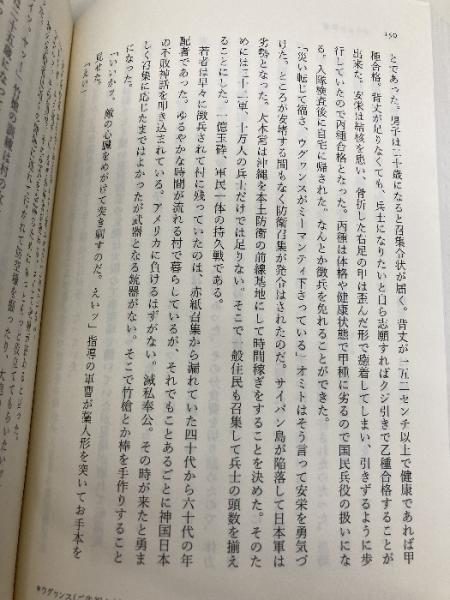 150
とであった。男子は二十歳になると召集令状が届く。背丈が一五二センチ以上で健康であれば甲
種合格。背丈が足りなくても、兵士になりたいと自ら志願すればクジ引きで乙種合格することが
出来た。安栄は結核を患い、骨折した右足の甲は歪んだ形で癒着してしまい、引きずるように歩
行していたので丙種合格となった。丙種は体格や健康状態で甲種に劣るので国民兵役の扱いにな
る。入隊検査後に自宅に帰された。なんとか徴兵を免れることができた。
「災い転じて福さ、ウグヮンスがミーマンティ下さっている」オミトはそう言って安栄を勇気づ
けた。ところが安堵する間もなく防衛召集が発令はされたのだ。サイパン島が陥落して日本軍は
劣勢となった。大本営は沖縄を本土防衛の前線基地にして時間稼ぎをすることを決めた。そのた
めには三十二軍、十万人の兵士だけでは足りない。そこで一般住民も召集して兵士の頭数を揃え
ることにした。一億玉砕、軍民一体の持久戦である。
若者は早々に徴兵されて村に残っていたのは、赤紙召集から漏れていた四十代から六十代の年
配者であった。ゆるやかな時間が流れる村で暮らしているが、それでもことあるごとに神国日本
の不敗神話を叩き込まれている。アメリカに負けるはずがない。滅私奉公。その時が来たと勇ま
しく召集に応じたまではよかったが武器となる銃器がない。そこで竹槍とか棒を手作りすること
になった。
「いいかッ、敵の心臓をめがけて突き刺すのだ。えいッ」指導の軍曹が藁人形を突いてお手本を
見せた。
「えい」